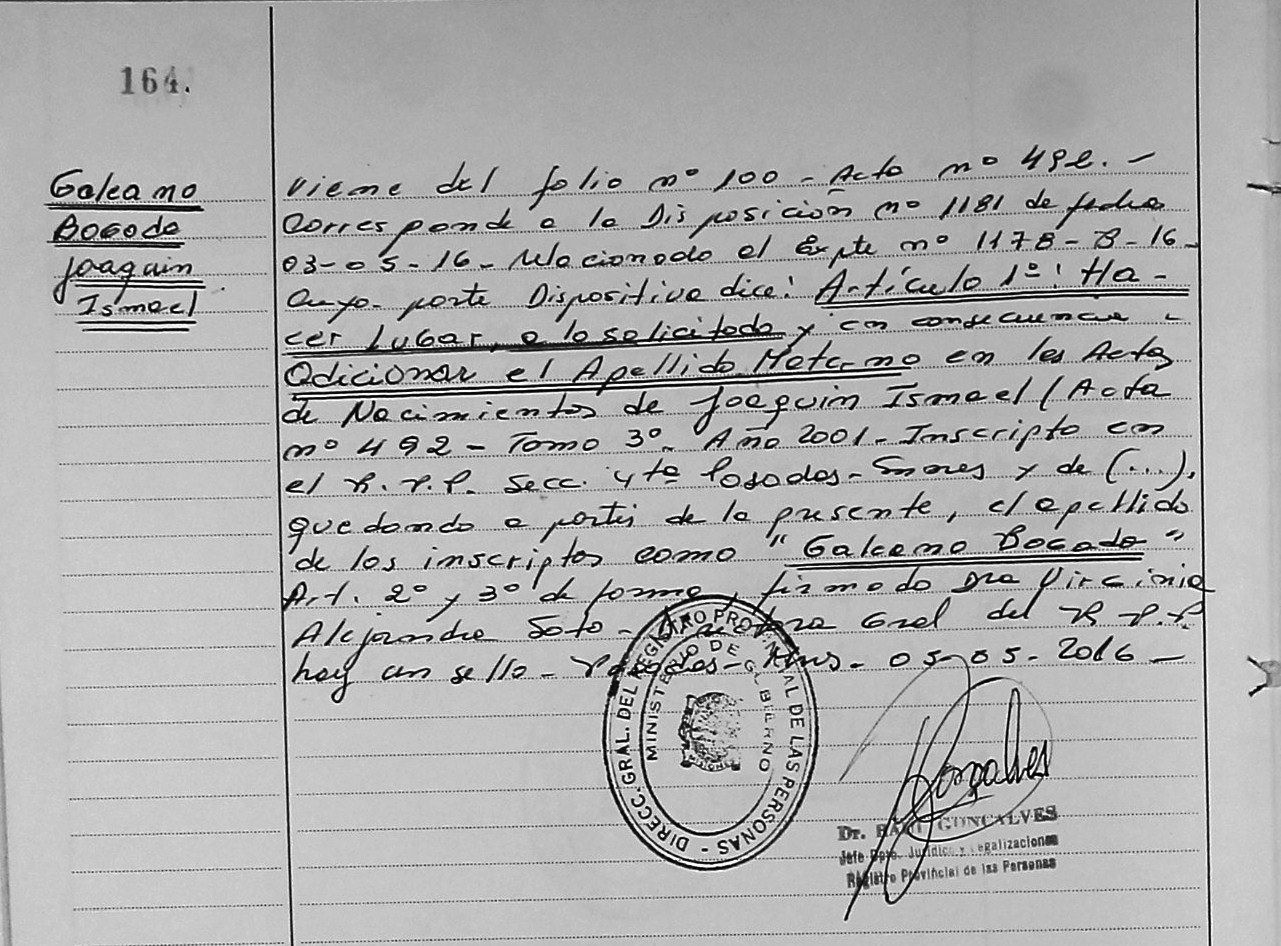 164.
Galeano
Bogado
Joaquin
Ismael
Viene del folio nº 100 - Acta nº 492. -
Corresponde a la Disposición nº 1181 de fecha
03-05-16 - relacionado el Expte nº 1178-B-16-
Cuya parte Dispositiva dice: Artículo 1º: Ha-
cer Lugar, a lo solicitado y en consecuencia -
Adicionar el Apellido Materno en las Actas
de Nacimientos de Joaquin Ismael (Acta
nº 492 - Tomo 3º - Año 2001 - Inscripto en
el R.P.P. Secc. 4ta Posadas - Mnes y de (...),
quedando a partir de la presente, el apellido
de los inscriptos como "Galeano Bogado"
Art. 2º y 3º de forma, firmado Dra Virginia
Alejandra Soto - Directora Gral del R.P.P.
hay un sello - Posadas - Mns - 05-05-2016 -
DIRECC. GRAL. DEL REGISTRO PROVINCIAL DE LAS PERSONAS -
MINISTERIO DE GOBIERNO
MISIONES
Gonçalves
Dr. RAUL GONCALVES
Jefe Dpto. Jurídico y Legalizaciones
Registro Provincial de las Personas